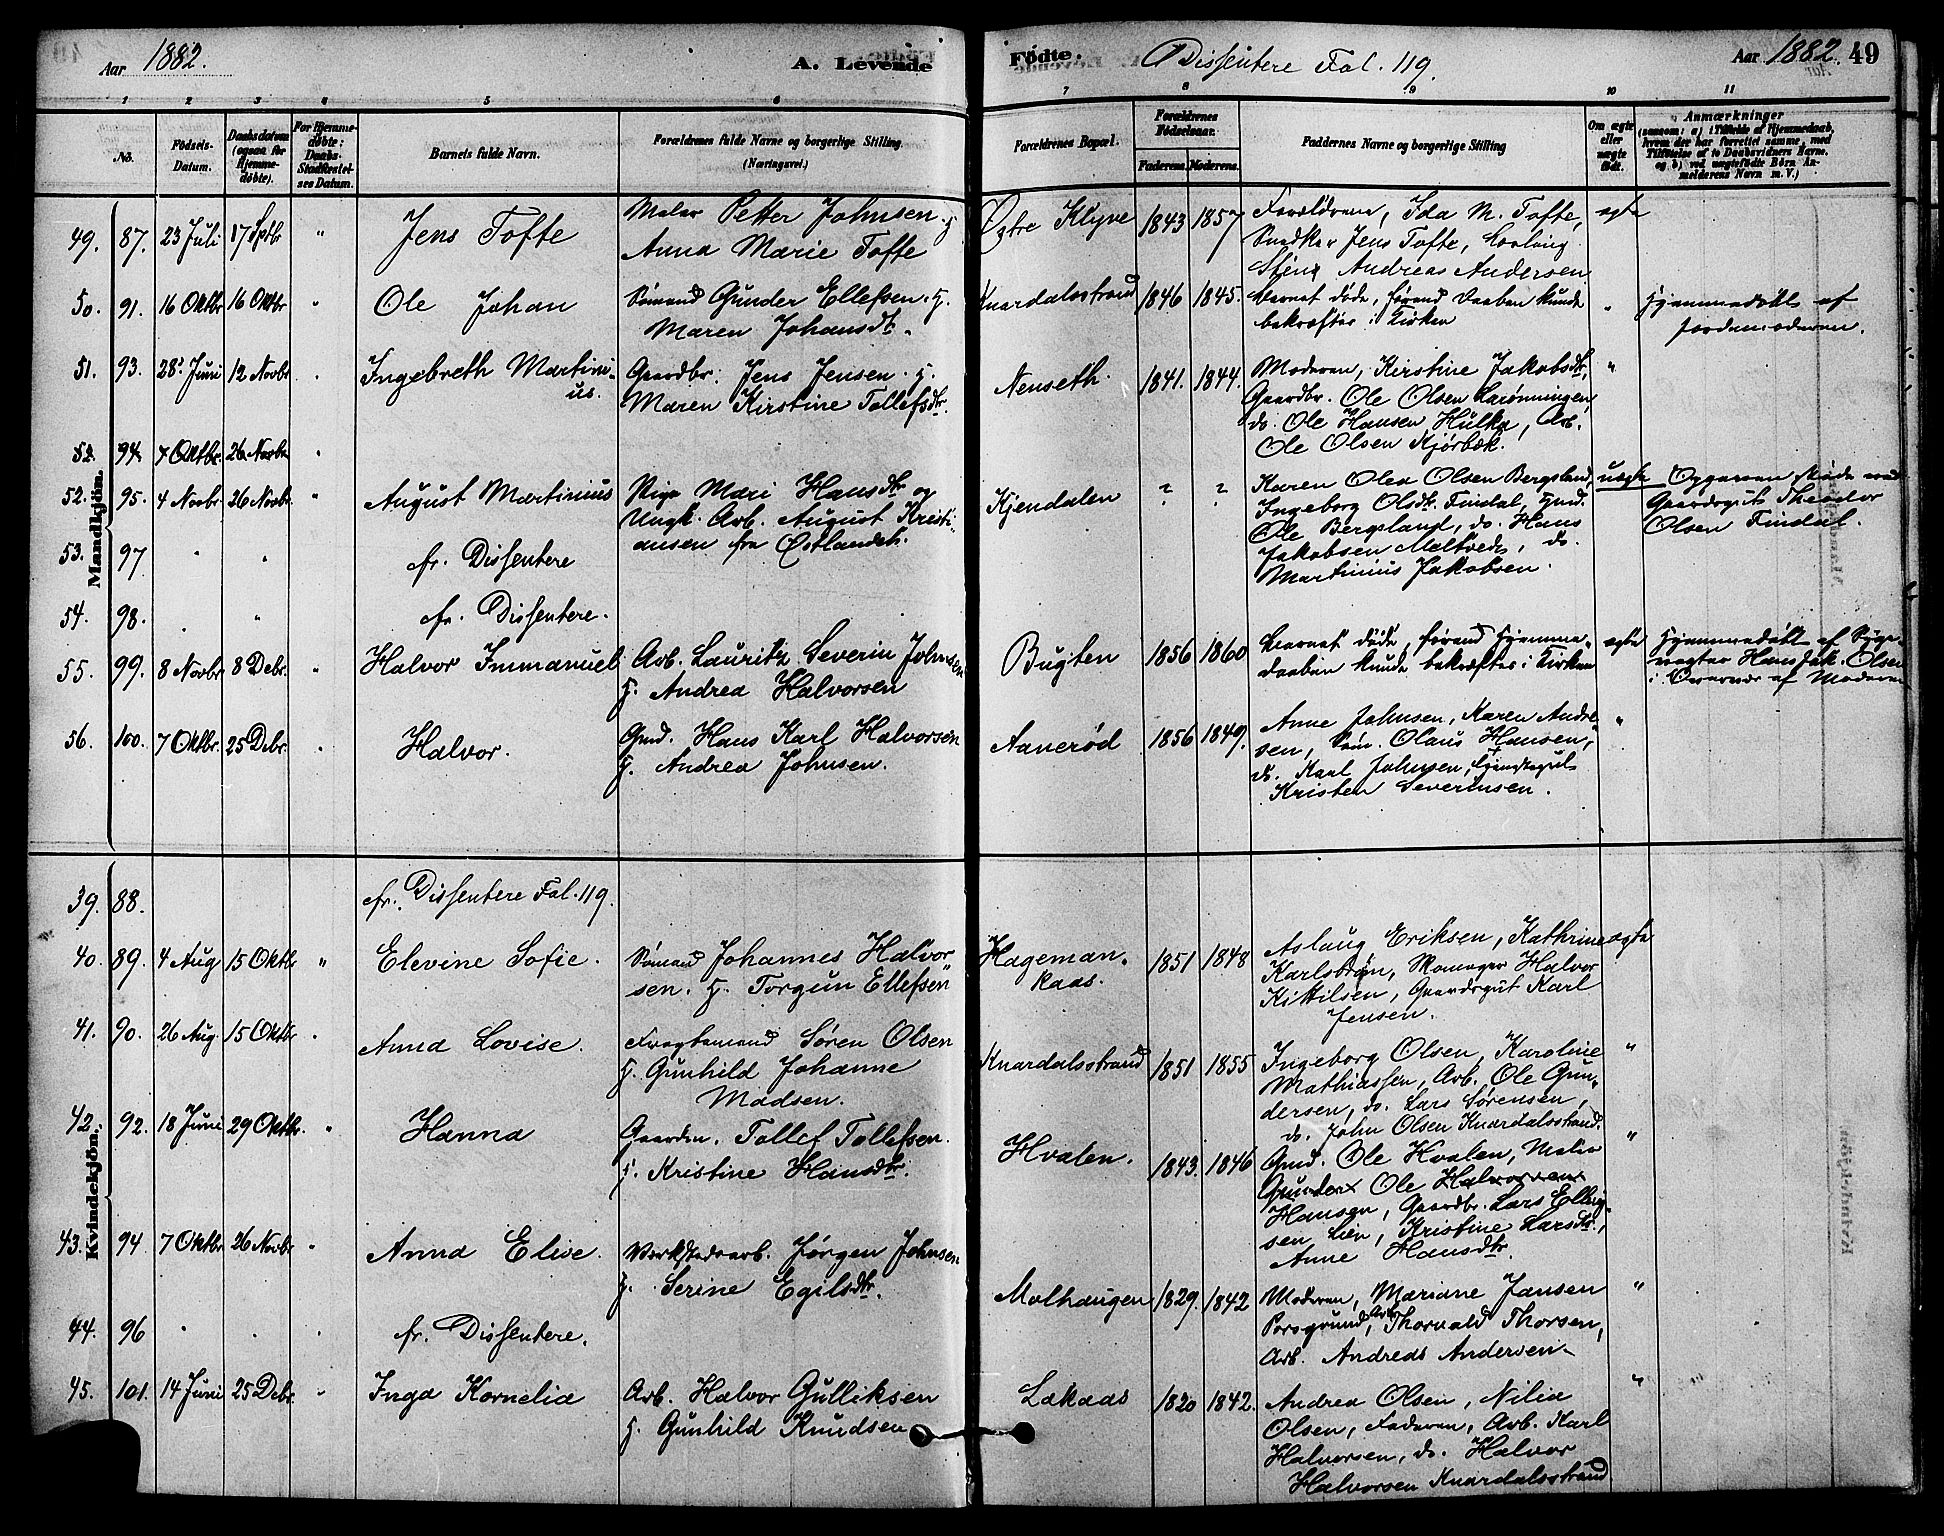 Aar 1882.
A. Levende
Fødte.
Dissentere Fol. 119.
Aar 1882. 49
1 2 3 4 5 6 7 8 9 10 11
No.
Fødsels-
Datum.
Daabsdatum
(ogsaa for
Hjemme-
døbte).
For Hjemme-
døbte:
Daabs-
Stadfæstel-
ses Datum.
Barnets fulde Navn.
Forældrenes fulde Navne og borgerlige Stilling
(Næringsvei.)
Forældrenes Bopæl.
Forældrenes
Fødselsaar.
Faderens. Moderens.
Faddernes Navne og borgerlige Stilling
Om ægte
eller
uægte
født.
Anmærkninger
(saasom: a) i Tilfælde af Hjemmedaab,
hvem der har forrettet samme, med
Tilføielse af to Daabsvidners Navne,
og b) ved uægtefødte Børn An-
melderens Navn m. V.)
Mandkjön.
49. 87. 23 Juli 17 Sptbr " Jens Tofte
Maler Petter Johnsen. H.
Anna Marie Tofte
Østre Klyve 1843 1857
Forældrene, Ida M. Tofte,
Snedker Jens Tofte,
Andreas Andersen
ægte
50. 91. 16 Oktbr 16 Oktbr " Ole Johan
Sömand Gunder Ellefsen. H.
Maren Johansdtr.
Knardalsstrand 1846 1845.
Barnet døde, førend Daaben kunde
bekræftes i Kirken
" Hjemmedøbt af
Jordemoderen.
51. 93. 28 Juni 12 Novbr. Ingebreth Martini-
us.
Gaardbr. Jens Jensen. H.
Maren Kirstine Tollefsdtr.
Nenseth. 1841. 1844.
Moderen, Kirstine Jakobsdtr,
Gaardbr. Ole Olsen
do. Ole Hansen Hulka, Arb.
Ole Olsen Kjørbæk.
"
52. 94. 7 Oktbr. 26 Novbr "
52. 95. 4 Novbr 26 Novbr " August Martinius
Pige Mari Hansdtr og
Ungk. Arb. August Kristi-
ansen fra Østlandet.
Kjendalen " "
Karen Olea Olsen Bergsland,
Ingeborg Olsdtr. Findal, Gmd.
Ole Bergsland, do. Hans
Jakobsen Meltveds, do.
Martinius Jakobsen.
uægte
Opgaven skede ved
Gaardsgut Theodor
Olsen Findal.
53. 97 " " fr. Dissentere
54. 98. " " fr. Dissentere.
55. 99. 8 Novbr 8 Debr. " Halvor Immanuel
Arb. Lauritz Severin Johnsen
H. Andrea Halvorsen
Bugten 1856 1860
Barnet døde, førend Hjemme-
daaben kunde bekræftes i Kirken
ægte
Hjemmedøbt af Syge-
vogter Hans Jak. Olsen
i Overvær af Moderen
56. 100. 7 Oktbr. 25 Debr. " Halvor.
Gmd. Hans Karl Halvorsen
H. Andrea Johnsen.
Aanerød 1856 1849.
Anne Johnsen, Karen Andre-
sen, Söm. Olaus Hansen,
do. Karl Johnsen,
Kristen Severinsen.
"
Kvindekjön.
39. 88. fr. Dissentere Fol. 119.
40. 89. 4 Aug 15 Oktbr " Elevine Sofie.
Sömand Johannes Halvor-
sen. H. Torgun Ellefsen
Hageman.
kaas. 1851 1848
Aslaug Eriksen, Kathrine
Karlsbrön, Skomager Halvor
Kittilsen, Gaardsgut Karl
Jensen.
ægte
41. 90. 26 Aug. 15 Oktbr " Anna Lovise.
Fragtemand Søren Olsen
H. Gunhild Johanne
Madsen.
Knardalsstrand 1851 1855
Ingeborg Olsen, Karoline
Mathiassen, Arb. Ole Gun-
dersen, do. Lars Sørensen,
do. John Olsen Knardalsstrand.
"
42. 92. 18 Juni 29 Oktbr. " Hanna
Tollef Tollefsen.
H. Kristine Hansdtr.
Hvalen. 1843. 1846
Gmd. Ole Hvalen,
Ole Halvorsen
Hansen, Gaardbr. Lars Elling-
sen Lien, Kristine Larsdtr,
Anne Hansdtr.
"
43. 94 7 Oktbr 26 Novbr " Anna Elise.
Værkstedsarb. Jørgen Johnsen
H. Serine Egilsdtr.
Molhaugen 1829. 1842
Moderen, Mariane Jansen
Porsgrund, Arb. Thorvald Thorsen,
Arb. Andreas Andersen
"
44. 96 " " " fr. Dissentere.
45. 101. 14 Juni 25 Debr. " Inga Kornelia
Arb. Halvor Gulliksen
H. Gunhild Knudsen
Lakaas 1820 1842.
Andrea Olsen, Nilia
Olsen, Faderen, Arb. Karl
Halvorsen, do. Halvor
Halvorsen Knardalsstrand.
"